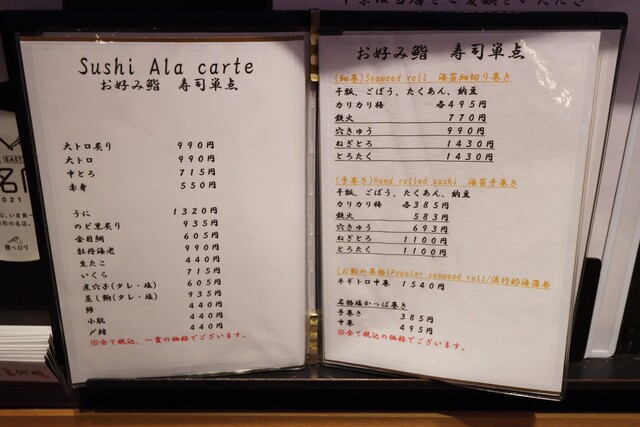 Sushi Ala carte
お好み鮨 寿司単点
大トロ炙り 990円
大トロ 990円
中とろ 715円
赤身 550円
うに 1320円
のど黒炙り 935円
金目鯛 605円
牡丹海老 990円
生たこ 440円
いくら 715円
煮穴子(タレ・塩) 605円
蒸し鮑(タレ・塩) 935円
鯵 440円
小肌 440円
〆鯖 440円
※全て税込、一貫の価格でございます。
お好み鮨 寿司単点
(細巻)Seaweed roll 海苔細切り巻き
干瓢、ごぼう、たくあん、納豆
カリカリ梅 各495円
鉄火 770円
穴きゅう 990円
ねぎとろ 1430円
とろたく 1430円
(手巻き)Hand rolled sushi 海苔手巻き
干瓢、ごぼう、たくあん、納豆
カリカリ梅 各385円
鉄火 583円
穴きゅう 693円
ねぎとろ 1100円
とろたく 1100円
(お勧め巻物)Popular seaweed roll/流行的海藻卷
ネギトロ中巻 1540円
名物塩かっぱ巻き
手巻き 385円
中巻 495円
※全て税込の価格でございます。
EAST
2021